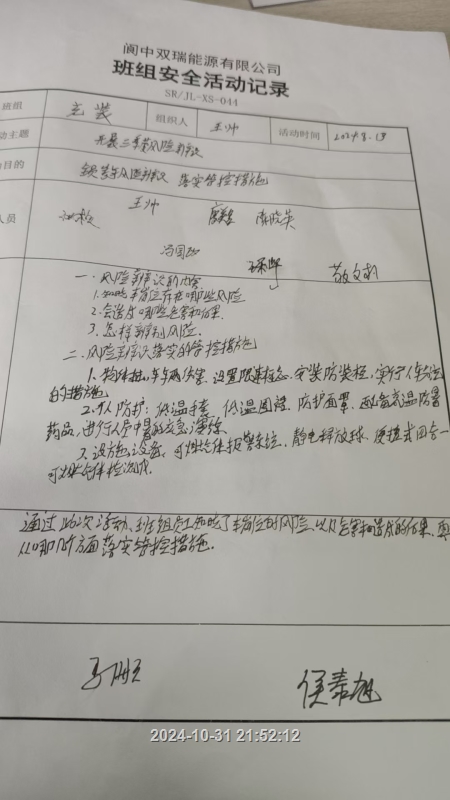 阆中双瑞能源有限公司
班组安全活动记录
SR/JL-XS-044
班组 充装 组织人 王帅 活动时间 2024.8.19
动主题 开展三季度风险辨识
目的 落实管控措施
人员 王帅
冯国
敬文
一.风险辨识的内容
1.知晓本岗位存在哪些风险
2.会造成哪些危害和后果
3.怎样辨别风险.
二.风险辨识落实的管控措施
1.物体打击.车辆伤害.设置限速标志.安装防装栏,实行人车分流
的措施
2.个人防护:低温手套 低温围裙.防护面罩.配备高温防暑
药品,进行人员中暑的应急演练.
3.设施设备:可燃气体报警系统.静电释放球.便携式四合一
可燃气体检测仪.
通过此次活动,班组员工知晓了本岗位的风险.以及危害和造成的后果.
从哪几个方面落实管控措施.
侯春旭
2024-10-31 21:52:12